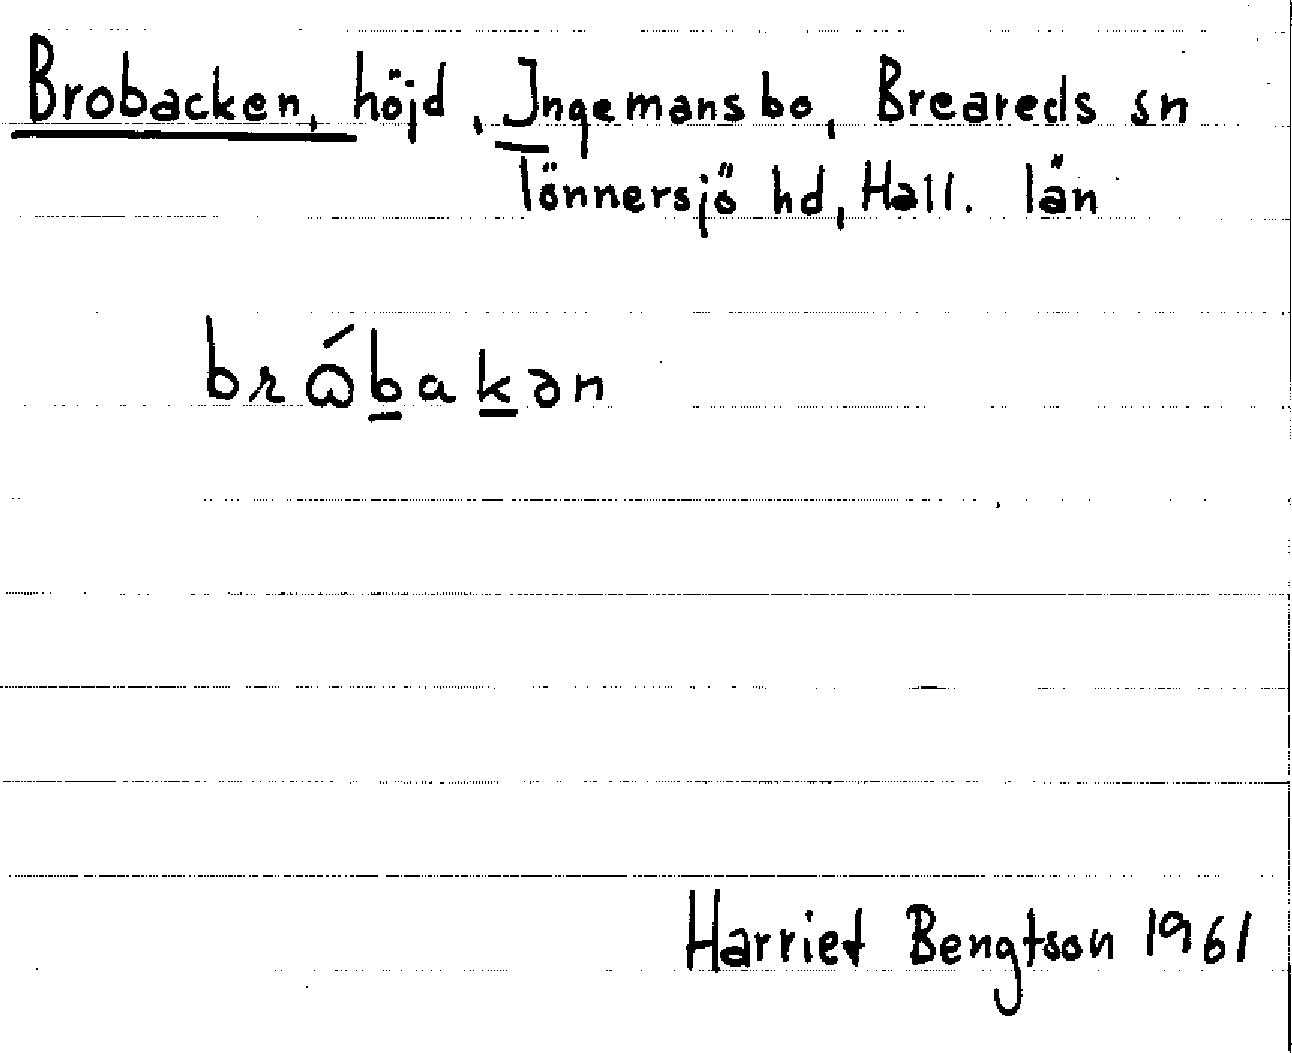 Brobacken, höjd, Ingemansbo, Breareds sn
Tönnersjö hd, Hall. län
brɷ́b̲ak̲ən
Harriet Bengtson 1961